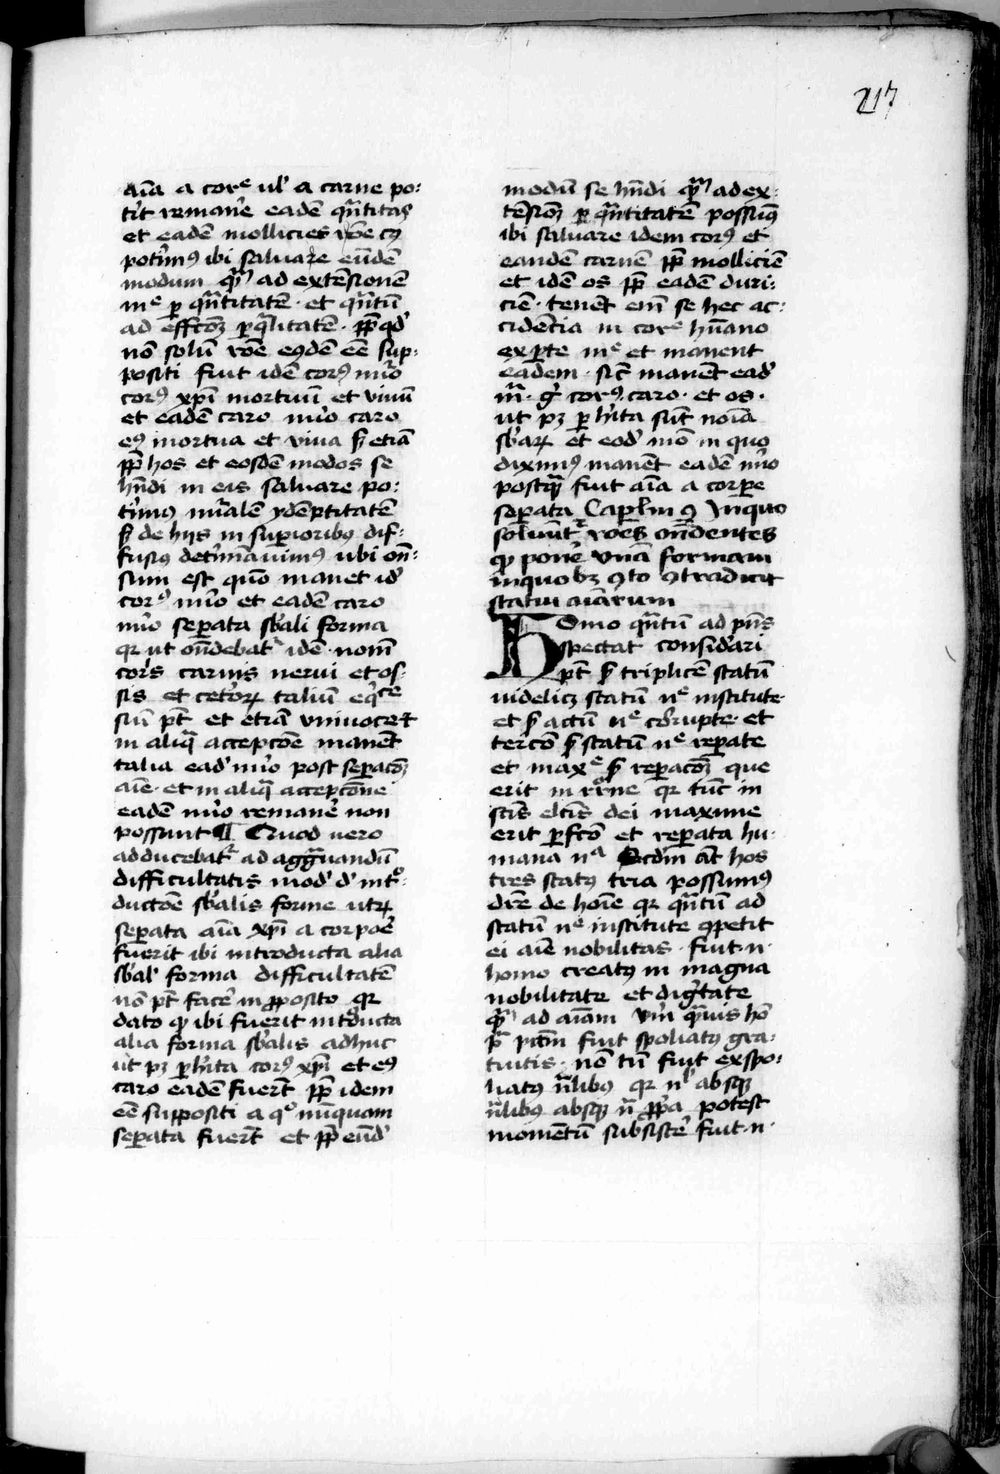 217
aīa a corᵉ ul' a carne po:
tit remanē eadē qn̄titas
et eadē mollicies rōe cꝫ
potim⁹ ibi saluare eūdē
modum qʳ ad extēsionē
mᵉ p qn̄titatē · et qn̄tū
ad effcōꝫ p qlitatē · pp qd'
nō solū rōe eꝯdē eē sup:
positi fuit idē corꝯ nūo
corꝯ xpī mortuū et viuū
et eadē caro nūo caro
eꝯ mortua et viua s̄ etiā
pp hos et eosdē modos se
hn̄di in eis saluare po:
timꝯ nūalē ydēptitatē
s̄ de hijs in supioribꝯ dif:
fusiꝯ det'mīauimꝯ ubi on̄:
sum est quō manet id'
corꝯ nūo et eadē caro
nūo sepata sb'ali forma
qr ut on̄debat' idē nom̄
cor's carnis nerui et os:
sis et cet'oꝝ taliū eq̄ce
siū pt̄ et etiā vniuoce ⁊
in aliq̄ accepcōe manēt
talia ead' nūo post sepacōꝫ
aīe · et in aliq̄ accepcōne
eadē nūo remanē non
possunt ¶ Quod uero
adducebat' ad aggrauandū
difficultatis mod' d' int°:
ductōe sb'alis forme utꝝ
sepata aīa xpī a corpoē
fuerit ibi introducta alia
sb'al' forma difficultatē
nō pt̄ facē in pposito qr
dato qꝫ ibi fuerit int'ducta
alia forma sb'alis adhuc
ut pꝫ p h'ita corꝯ xpī et eꝯ
caro eadē fuerit pp idem
eē suppositi a q° nūquam
sepata fuerit et pp eūd'
modū se hn̄di qʳ ad ex:
tēsionꝫ p qn̄titatē possumꝯ
ibi saluare idem corꝯ et
eandē carnē pp molliciē
et idē os pp eadē duri:
ciē · tenēt em̄ se hec ac:
cidēcia in corᵉ hūano
ex pte mᵉ et manent
eadem · sic̄ manēt ead'
m̄ · g° corꝯ caro · et os ·
ut pꝫ p h'ita sūt noīa
sb'aꝝ et eod' mō in quo
diximꝯ manēt eadē nūo
postqʳ fuit aīa a corpe
sepata Caplm ꝯ In quo
soluunt' rōes on̄dentes
qꝫ ponē vnā formam
in quolibꝫ ꝯto ꝯtradicit
statui aīarum
Homo qn̄tū ad pn̄s
spectat consid'ari
pt̄ s̄ triplicē statū
uidelicꝫ statū nᵉ institute
et s̄ actū nᵉ corrupte · et
tercō s̄ statū nᵉ repate
et maxᵉ s̄ repacōꝫ que
erit in rʳōne qr tūc in
sc̄is elcīs dei maxime
erit pfcō et repata hu:
mana nᵃ Scdm āt hos
tres statꝯ tria possumꝯ
drē de hoīe qr qn̄tū ad
statū nᵉ institute ꝯpetit
ei aīe nobilitas · fuit · n ·
homo creatꝯ in magna
nobilitate et dig'tate
qʳ ad aīam Vn̄ qʳuis hō
p pctm fuit spoliatꝯ gra:
tuitis · nō tn̄ fuit exspo:
liatꝯ n̄libꝯ qr nˡ absqꝫ
n̄libꝯ absqꝫ n̄ ppa potest
momētū subsistē fuit · n ·